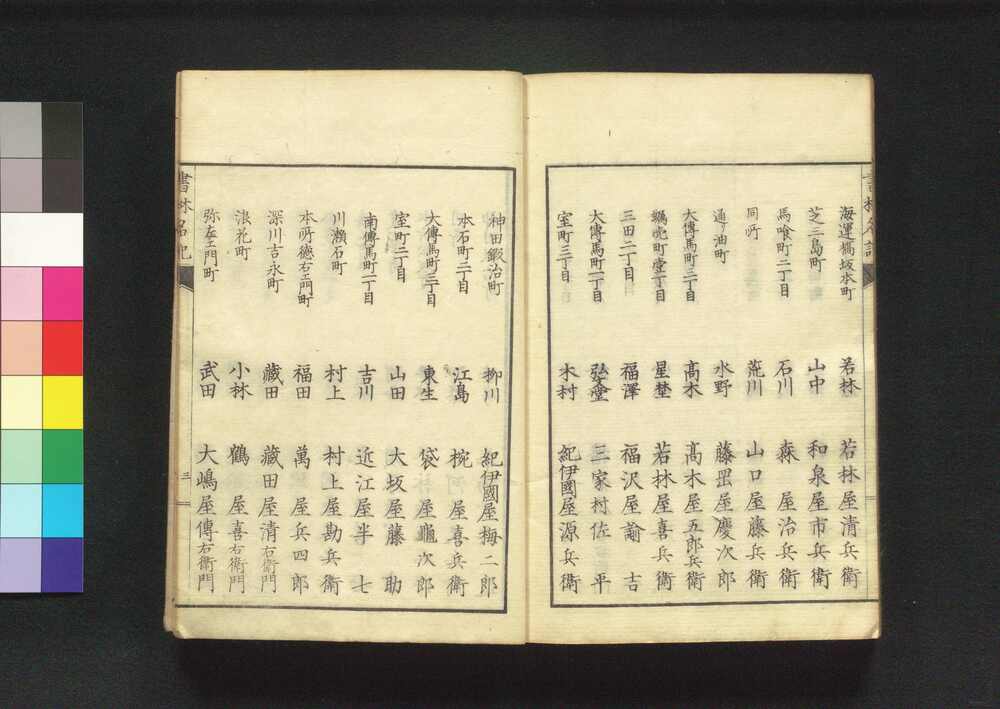 海運橋坂本町 若林 若林屋清兵衛
芝三島町 山中 和泉屋市兵衛
馬喰町二丁目 石川 森屋治兵衛
同所 荒川 山口屋藤兵衛
通油町 水野 藤岡屋慶次郎
大傳馬町三丁目 髙木 髙木屋五郎兵衛
蠣売町壹丁目 星埜 若林屋喜兵衛
三田二丁目 福澤 福沢屋諭吉
大傳馬町二丁目 弘令堂 三家村佐平
室町三丁目 木村 紀伊國屋源兵衛
神田鍛冶町 柳川 紀伊國屋梅二郎
本石町二丁目 江島 椀屋喜兵衛
大傳馬町三丁目 東生 袋屋亀次郎
室町二丁目 山田 大坂屋藤助
南傳馬町二丁目 吉川 近江屋半七
川瀬石町 村上 村上屋勘兵衛
本所徳右エ門町 福田 萬屋兵四郎
深川吉永町 藏田 藏田屋清右衛門
浪花町 小林 鶴屋喜右衛門
弥左エ門町 武田 大嶋屋傳右衛門
書林名記
三